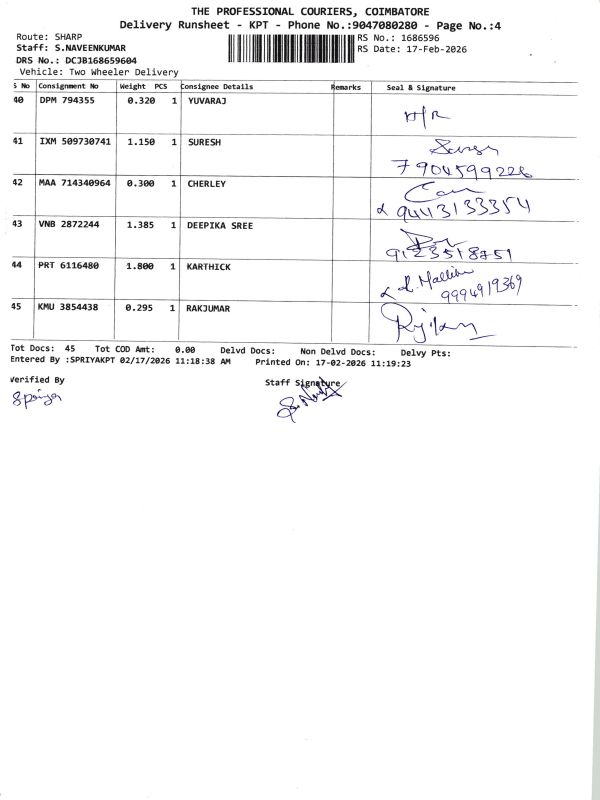 THE PROFESSIONAL COURIERS, COIMBATORE
Delivery Runsheet - KPT - Phone No.:9047080280 - Page No.:4
Route: SHARP
RS No.: 1686596
Staff: S.NAVEENKUMAR
RS Date: 17-Feb-2026
DRS No.: DCJB168659604
Vehicle: Two Wheeler Delivery
S No Consignment No Weight PCS Consignee Details Remarks Seal & Signature
40 DPM 794355 0.320 1 YUVARAJ H/R
41 IXM 509730741 1.150 1 SURESH
7904599226
42 MAA 714340964 0.300 1 CHERLEY
9443133354
43 VNB 2872244 1.385 1 DEEPIKA SREE
9123518751
44 PRT 6116480 1.800 1 KARTHICK
9994919369
45 KMU 3854438 0.295 1 RAKJUMAR
Tot Docs: 45 Tot COD Amt: 0.00 Delvd Docs: Non Delvd Docs: Delvy Pts:
Entered By :SPRIYAKPT 02/17/2026 11:18:38 AM Printed On: 17-02-2026 11:19:23
Verified By Staff Signature
Spriya